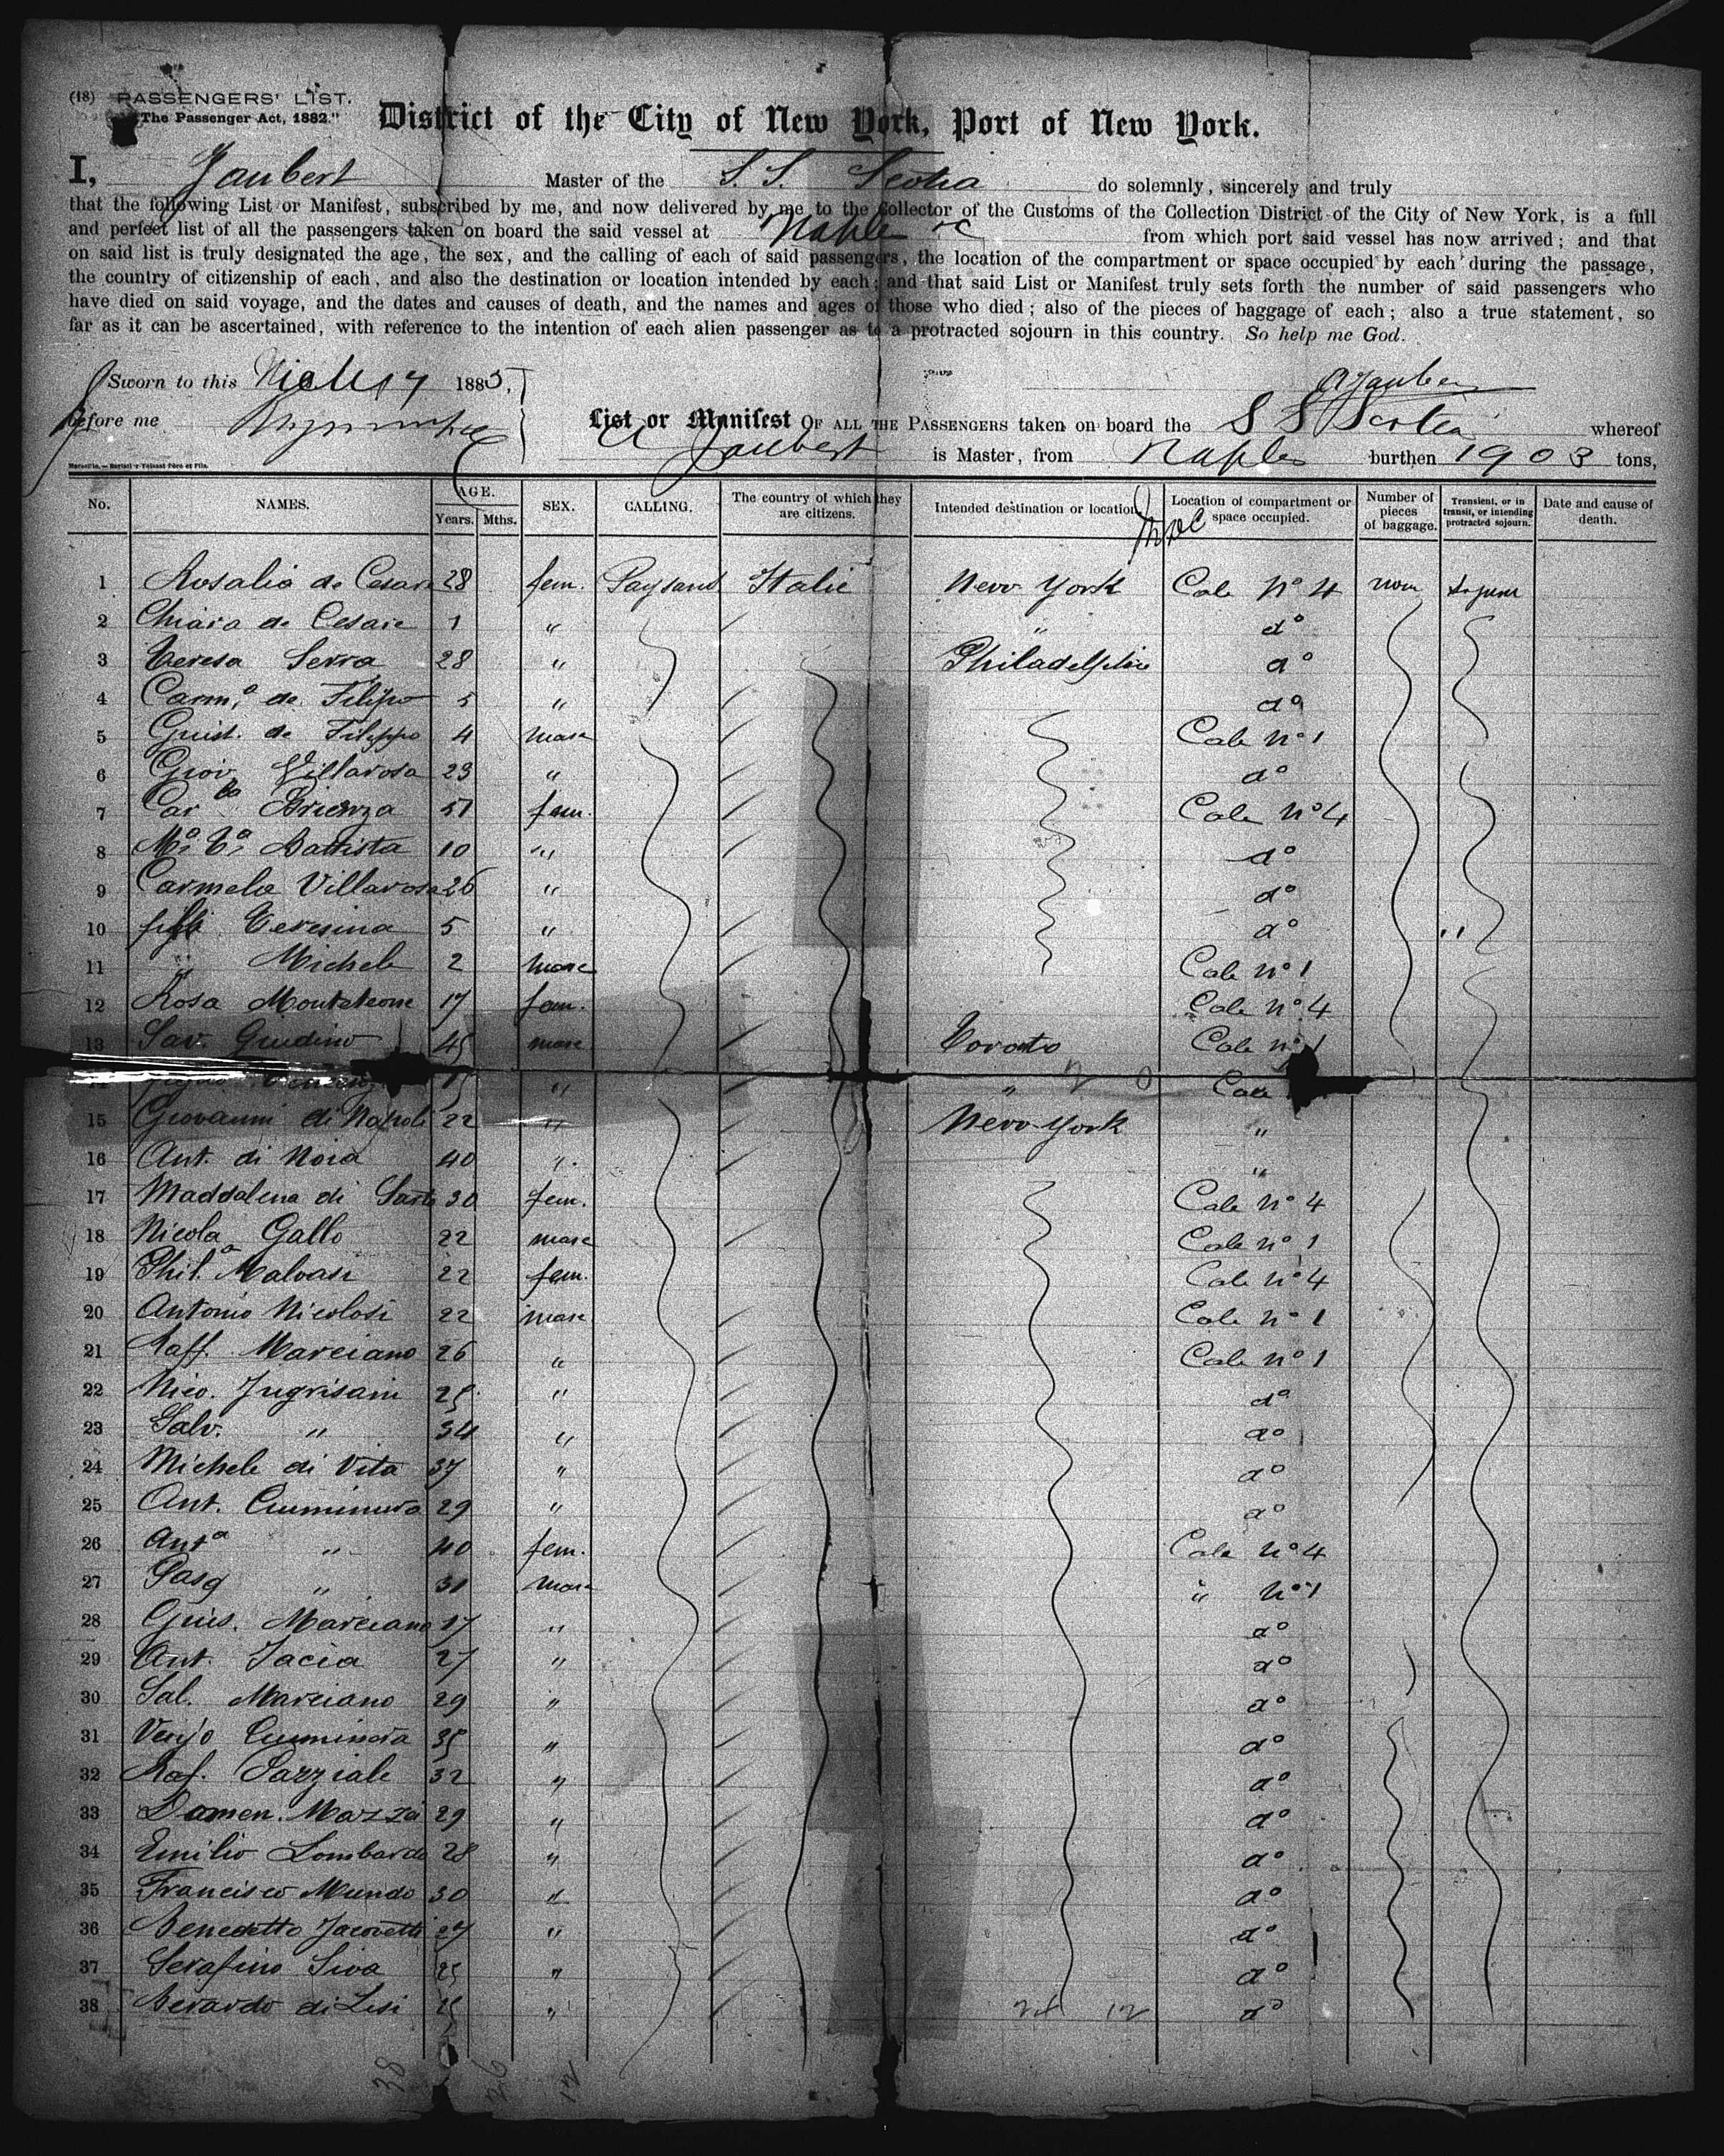 (18) PASSENGERS' LIST.
"The Passenger Act, 1882."
District of the City of New York, Port of New York.
I, Jaubert Master of the S. S. Scotia do solemnly, sincerely and truly
that the following List or Manifest, subscribed by me, and now delivered by me to the Collector of the Customs of the Collection District of the City of New York, is a full
and perfect list of all the passengers taken on board the said vessel at Naples &c from which port said vessel has now arrived; and that
on said list is truly designated the age, the sex, and the calling of each of said passengers, the location of the compartment or space occupied by each during the passage,
the country of citizenship of each, and also the destination or location intended by each; and that said List or Manifest truly sets forth the number of said passengers who
have died on said voyage, and the dates and causes of death, and the names and ages of those who died; also of the pieces of baggage of each; also a true statement, so
far as it can be ascertained, with reference to the intention of each alien passenger as to a protracted sojourn in this country. So help me God.
Sworn to this 17 1885, A Jaubert
before me
List or Manifest OF ALL THE PASSENGERS taken on board the S S Scotia whereof
A Jaubert is Master, from Naples burthen 1903 tons,
No. NAMES. AGE. Years. Mths. SEX. CALLING. The country of which they are citizens. Intended destination or location Location of compartment or space occupied. Number of pieces of baggage. Transient, or in transit, or intending protracted sojourn. Date and cause of death.
1 Rosalia de Cesare 28 fem. Paysans Italie New York Cale No 4
2 Chiara de Cesare 1 " " do
3 Teresa Serra 28 " Philadelphie do
4 Carm.a de Filipo 5 " do
5 Guist. de Filippo 4 masc Cale No 1
6 Giov. Villarosa 23 " do
7 Car Brienza 51 fem. Cale No 4
8 Ma Ta Battista 10 " do
9 Carmela Villarosa 26 " do
10 Teresina 5 " do "
11 " Michele 2 masc Cale No 1
12 Rosa Monteleone 17 fem. Cale No 4
13 Sav. Giudino 45 masc Toronto Cale No 1
" " Cale
15 Giovanni di Napoli 22 " New-York "
16 Ant. di Noia 40 " "
17 Maddalena di 30 fem. Cale No 4
18 Nicola Gallo 22 masc Cale No 1
19 Phil.a Malvasi 22 fem. Cale No 4
20 Antonio Nicolosi 22 masc Cale No 1
21 Raff. Marciano 26 " Cale No 1
22 Nico. Jugrisani 25 " do
23 Salv. " 34 " do
24 Michele di Vita 37 " do
25 Ant. 29 " do
26 Anta " 40 fem. Cale No 4
27 Pasq " 31 masc " No 1
28 Gius. Marciano 17 " do
29 Ant. Jacia 27 " do
30 Sal. Marciano 29 " do
31 35 " do
32 Raf. Pazziale 32 " do
33 Domen. Mazza 29 " do
34 Emilio Lombardo 28 " do
35 Francisco Mundo 30 " do
36 Benedetto Jacovetti 27 " do
37 Serafino Siva 25 " do
38 Berardo di Lisi 25 " do
38 26 12